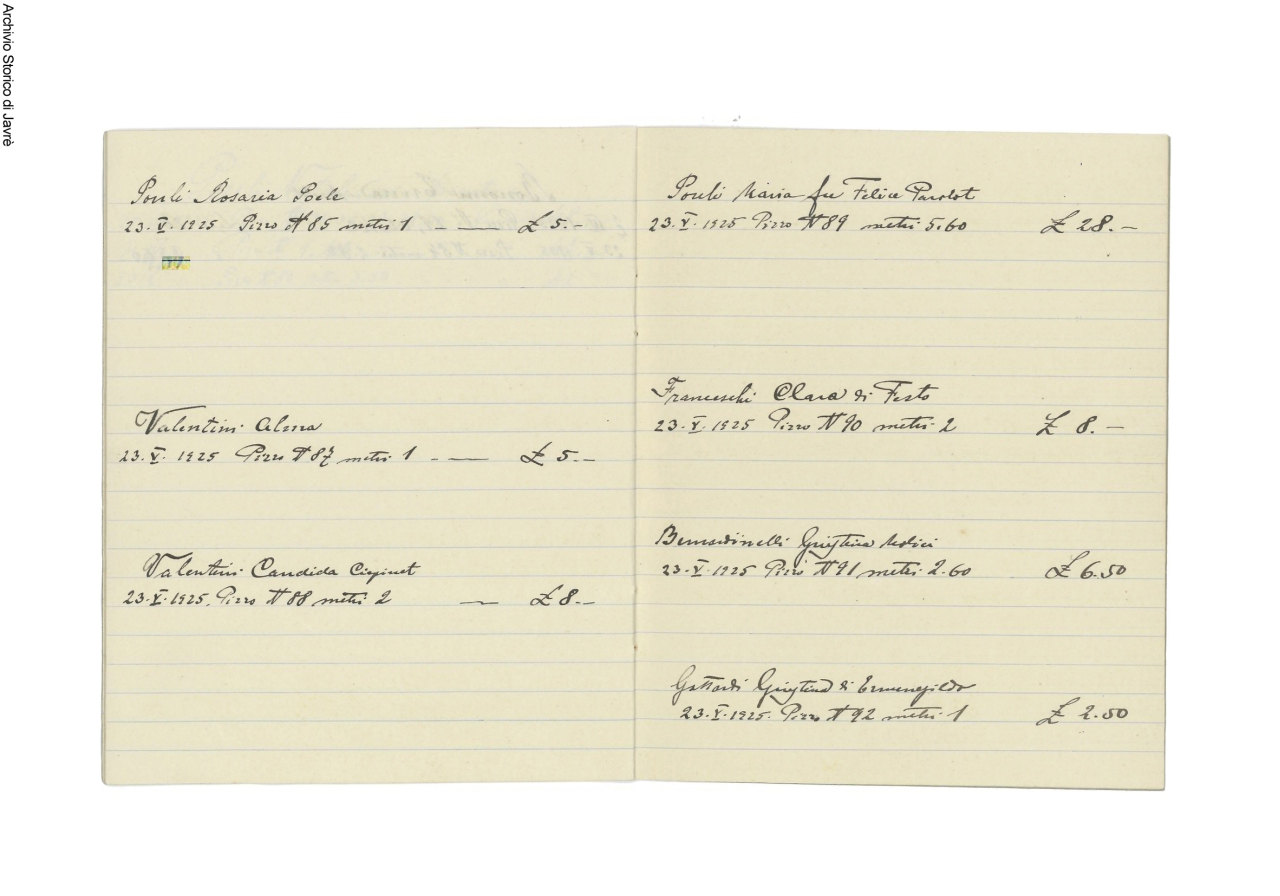 Archivio Storico di Javrè
Pouli Rosaria Poele
23. V. 1925 Pizzo N 85 metri 1 — £ 5.-
Valentini Alma
23. V. 1925 Pizzo N 87 metri 1 - — £ 5.-
Valentini Candida Cirpinet
23. V. 1925. Pizzo N 88 metri 2 — £ 8.-
Pouli Maria fu Felice Parolot
23. V. 1925 Pizzo N 89 metri 5.60 £ 28.-
Franceschi Clara di Festo
23. V. 1925 Pizzo N 90 metri 2 £ 8.-
Bernardinelli Giustina Molici
23. V. 1925 Pizzo N 91 metri 2.60 £ 6.50
Gottardi Giustina di Ermenegildo
23. V. 1925. Pizzo N 92 metri 1 £ 2.50